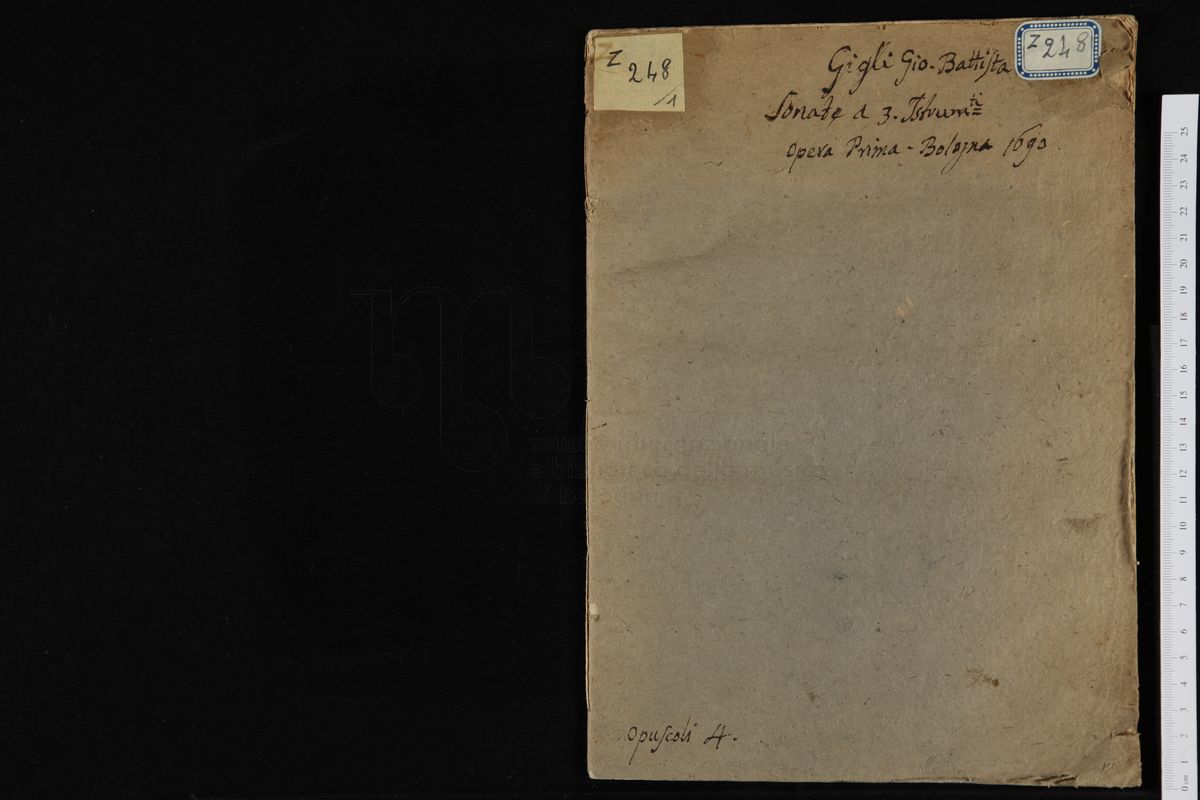 Z
248
/1
Z 248
Gigli Gio. Battista
Sonate a 3. Istrum.ti
Opera Prima - Bologna 1690.
museo internazionale
e biblioteca della musica
di bologna
Opuscoli 4.
0 cm 1 2 3 4 5 6 7 8 9 10 11 12 13 14 15 16 17 18 19 20 21 22 23 24 25